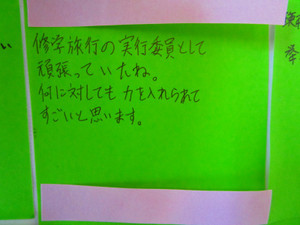 修学旅行の実行委員として
頑張っていたね。
何に対しても力を入れられて
すごいと思います。